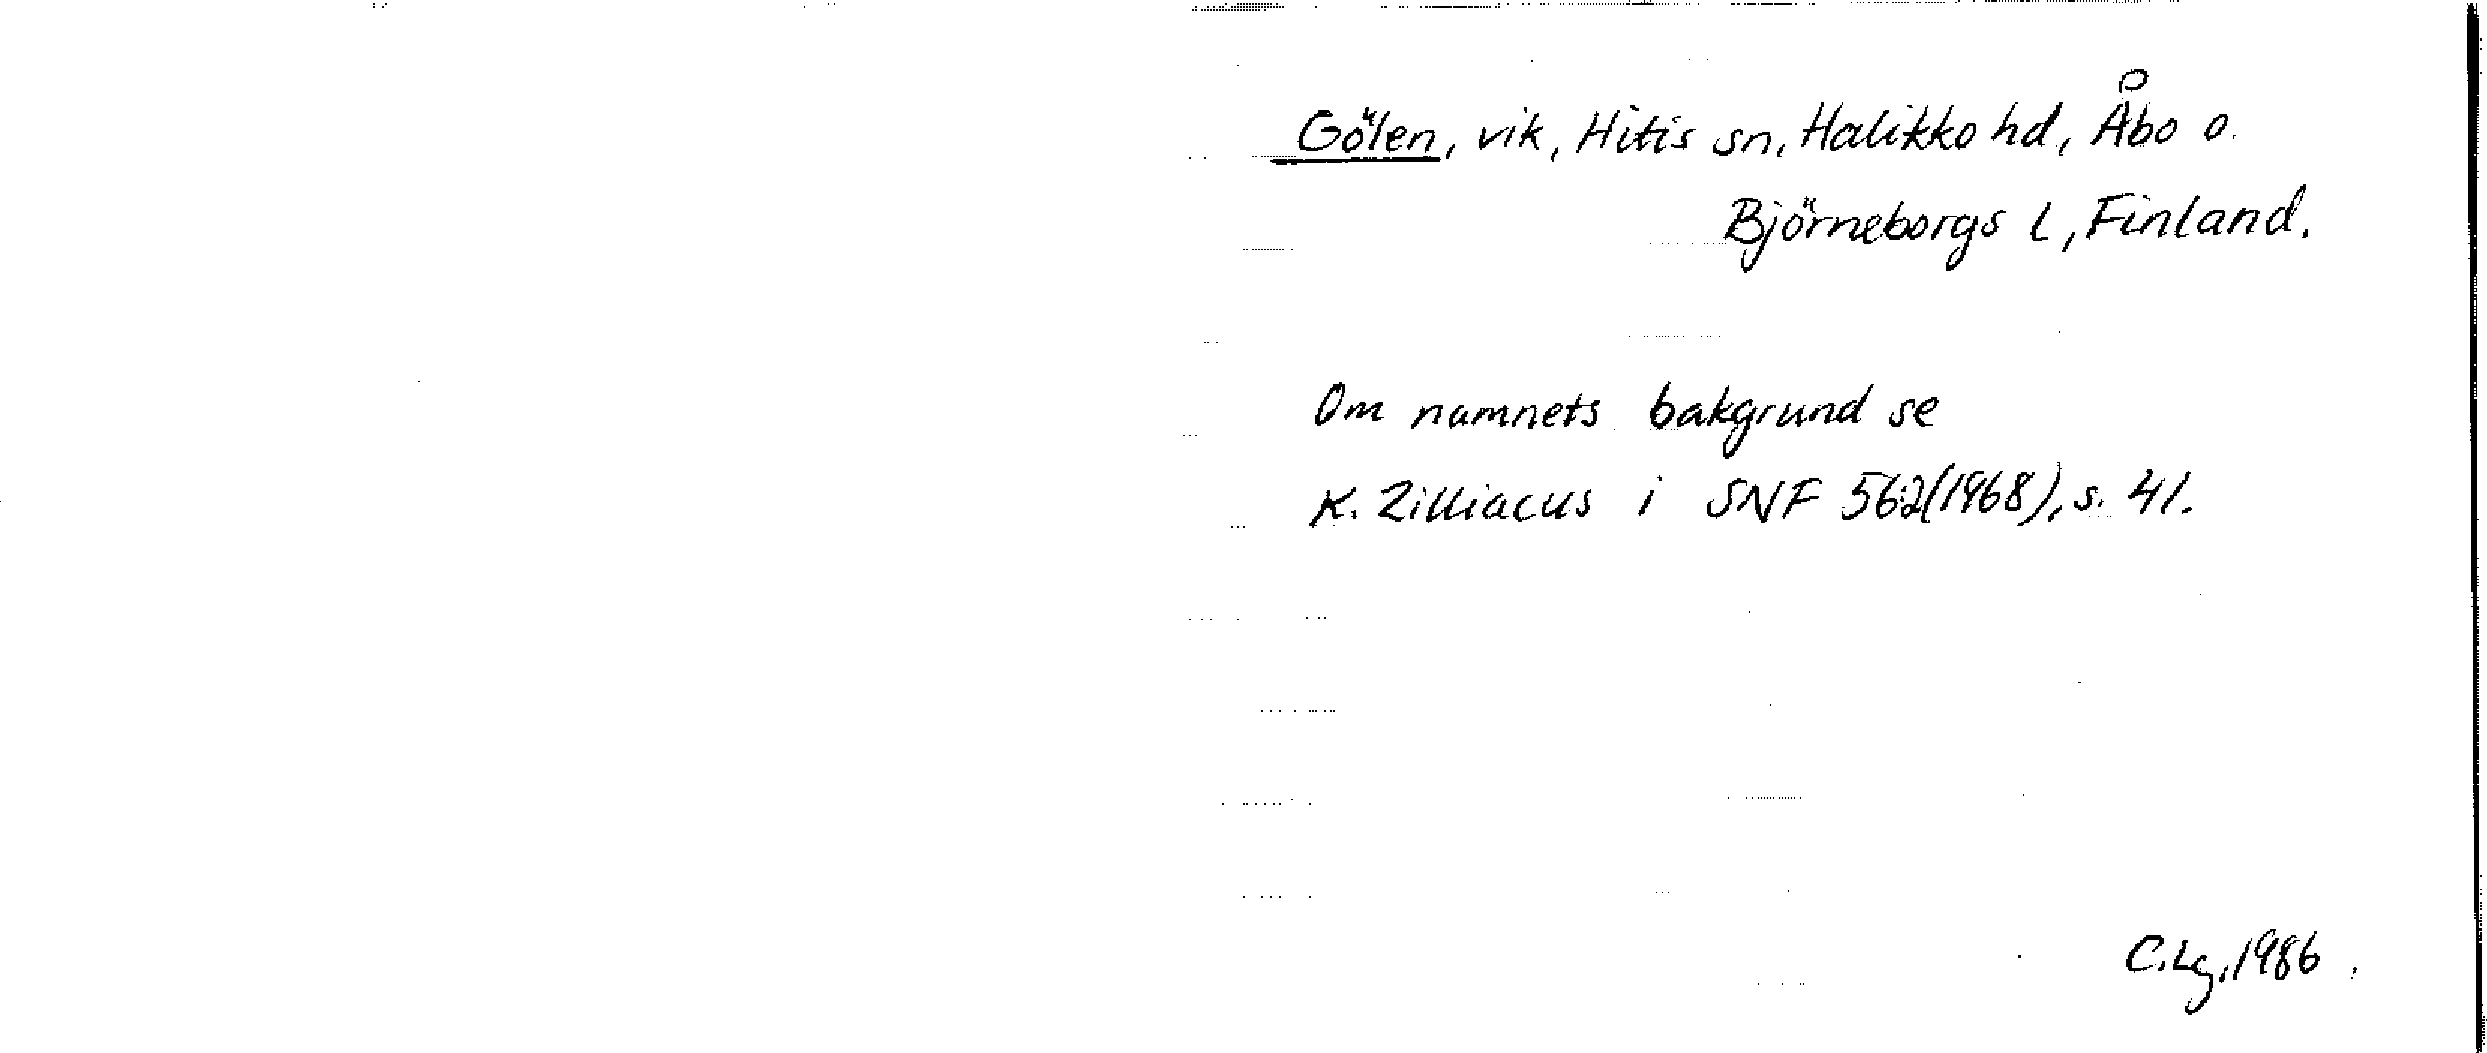 Gölen, vik, Hitis sn, Halikko hd, Åbo o.
Björneborgs l, Finland.
Om namnets bakgrund se
K. Zilliacus i SNF 562(1968), s. 41.
C.Lg, 1986.